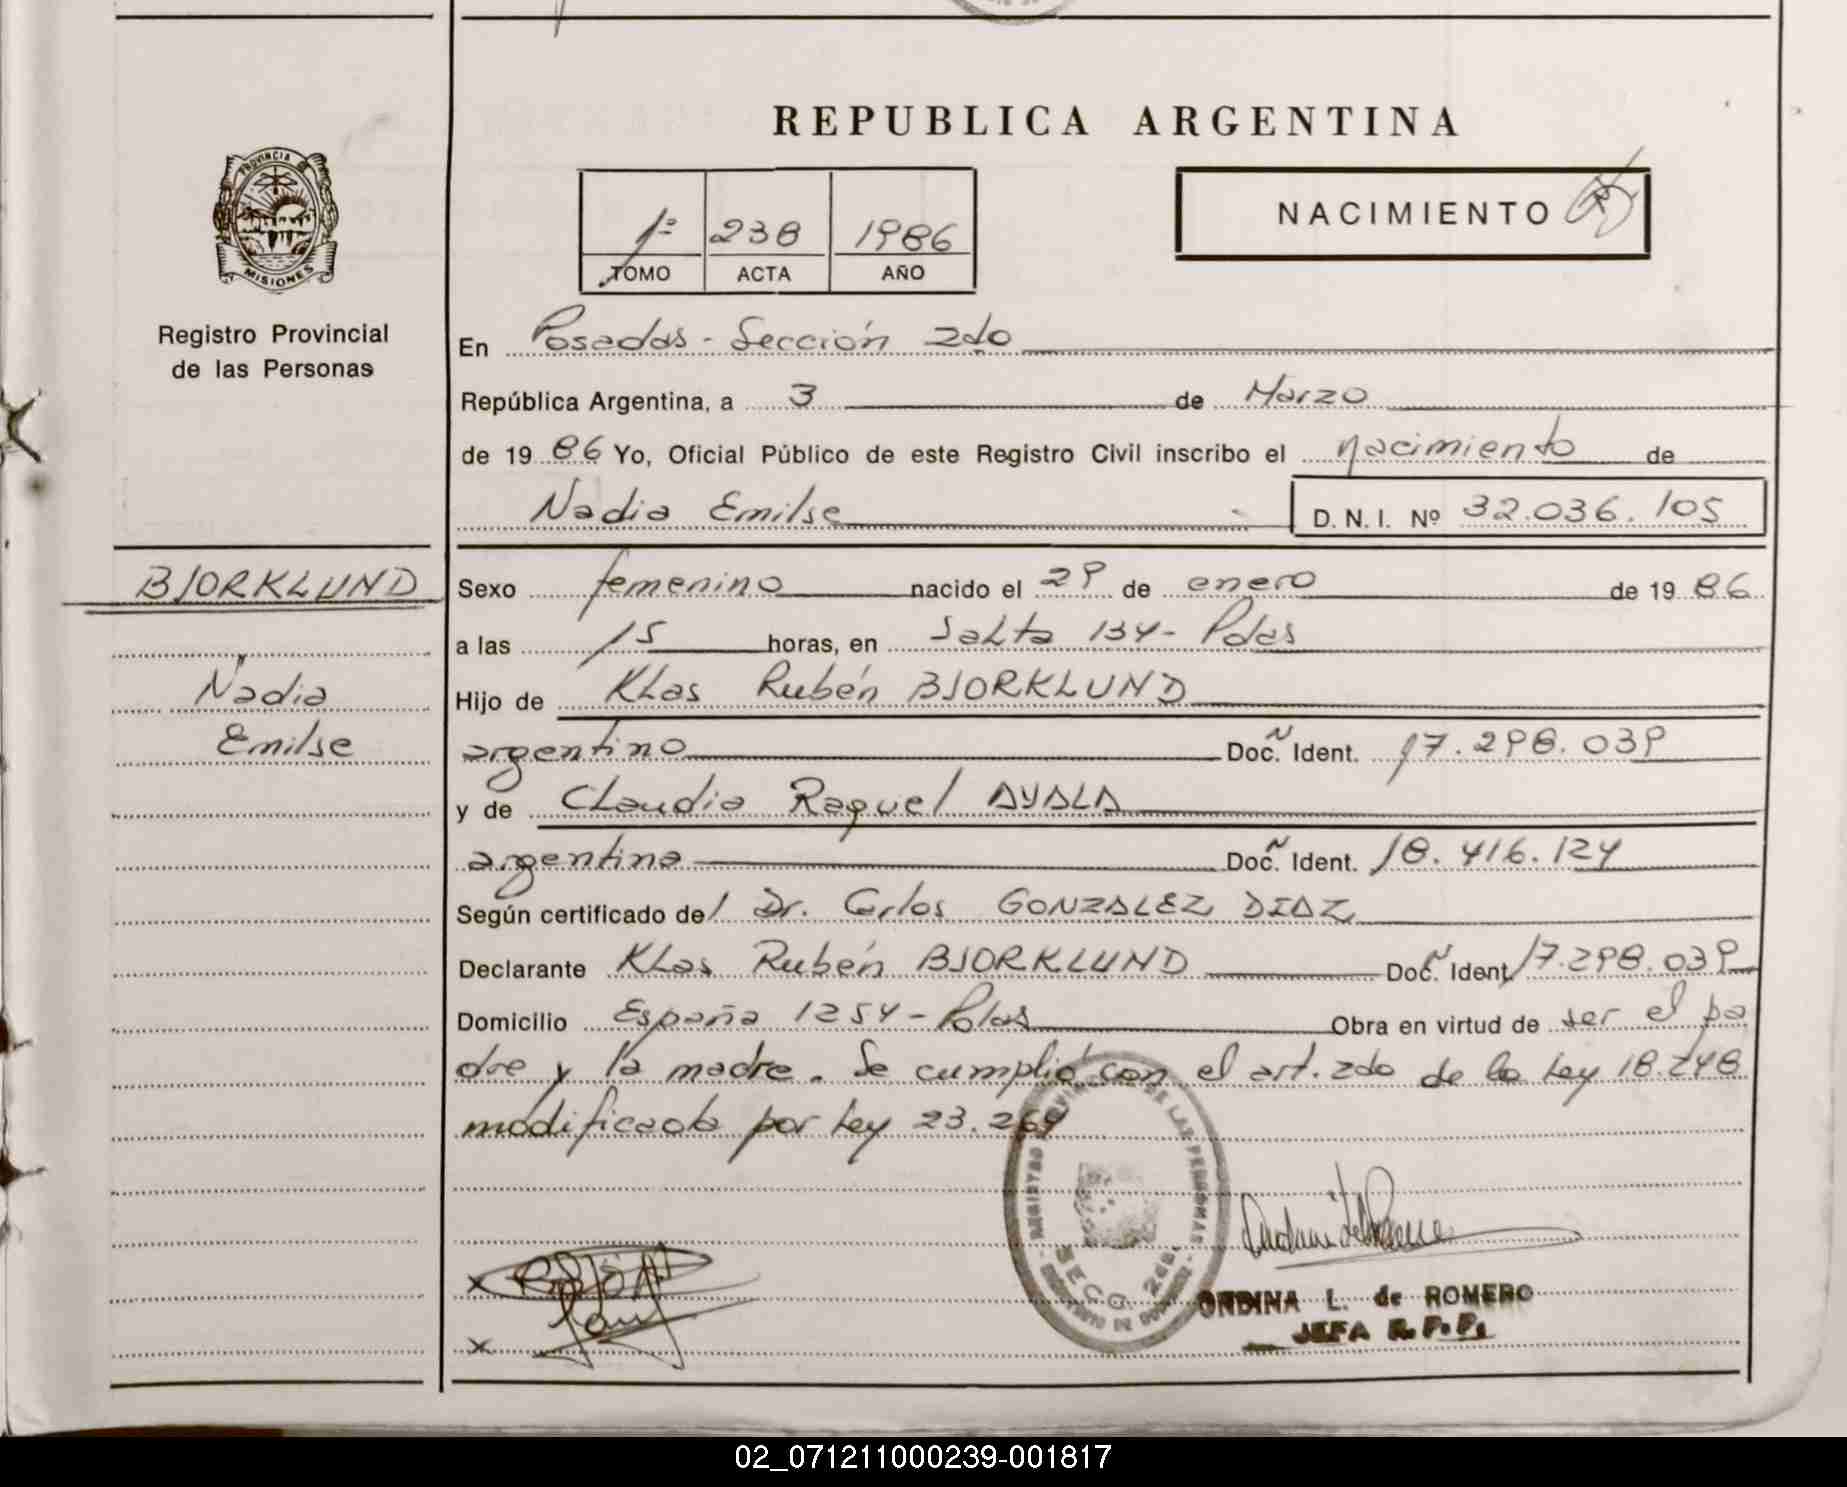 REPUBLICA ARGENTINA
PROVINCIA DE
MISIONES
Registro Provincial
de las Personas
1º 238 1986
TOMO ACTA AÑO
NACIMIENTO
En Posadas - Sección 2do
República Argentina, a 3 de Marzo
de 1986 Yo, Oficial Público de este Registro Civil inscribo el nacimiento de
Nadia Emilse D.N.I. Nº 32.036.105
BJORKLUND
Nadia
Emilse
Sexo femenino nacido el 29 de enero de 1986
a las 15 horas, en Salta 134 - Pdas
Hijo de Klas Rubén BJORKLUND
argentino Doc. Ident. 17.298.039
y de Claudia Raquel AYALA
argentina Doc. Ident. 18.416.124
Según certificado del Dr. Carlos GONZALEZ DIAZ
Declarante Klas Rubén BJORKLUND Doc. Ident. 17.298.039
Domicilio España 1254 - Pdas Obra en virtud de ser el pa
dre y la madre. Se cumplió con el art. 2do de la Ley 18.248
modificada por Ley 23.264
REGISTRO PROVINCIAL DE LAS PERSONAS
SECC. 2da.
x
x
ORDINA L. de ROMERO
JEFA R. P. P.
02_071211000239-001817